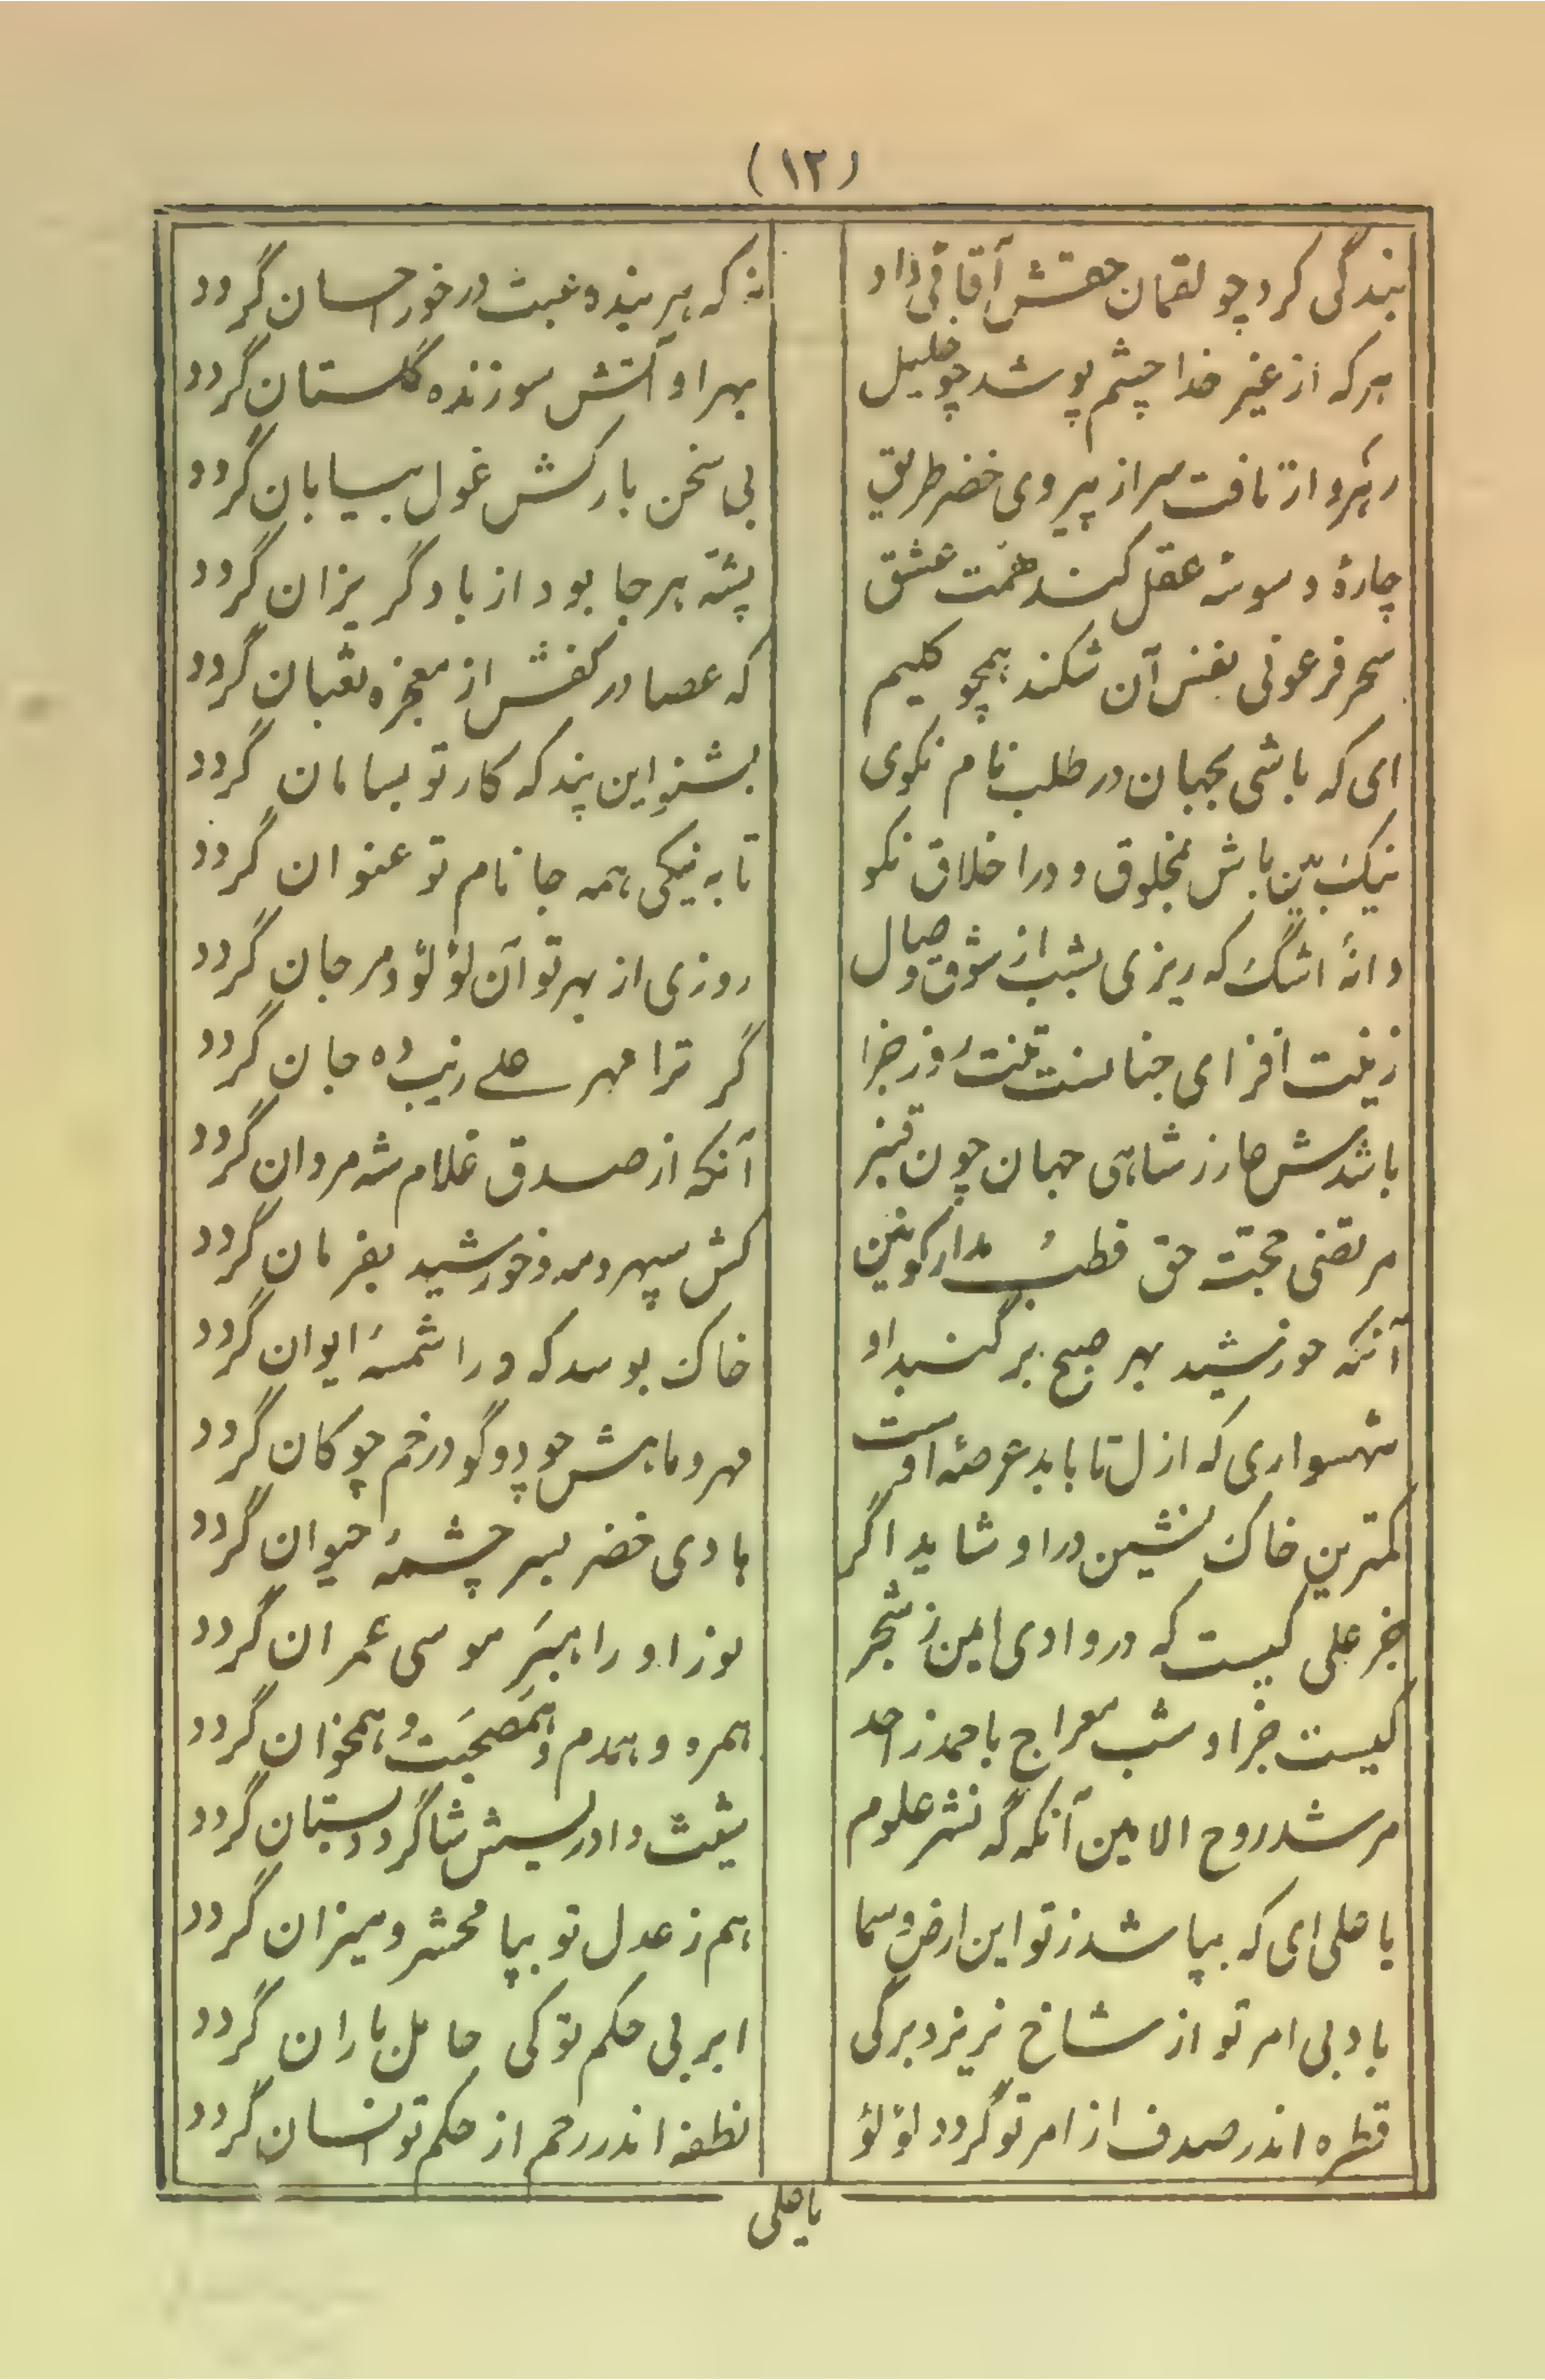 (۱۲)
بندگی کرد چو لقمان حقتش آقائی داد
نه که هر بنده عبث درخور احسان گردد
هرکه از غیر خدا چشم بپوشد چو خلیل
بهر او آتش سوزنده گلستان گردد
رهرو ار تافت سر از پیروی خضر طریق
بی سخن بارکش غول بیابان گردد
چارهٔ وسوسهٔ عقل کند همت عشق
پشه هرجا بود از باد گریزان گردد
سحر فرعونی نفس آن شکند همچو کلیم
که عصا در کفش از معجزه ثعبان گردد
ای که باشی بجهان در طلب نام نکوی
بشنو این پند که کار تو بسامان گردد
نیک بین باش بمخلوق و در اخلاق نکو
تا به نیکی همه جا نام تو عنوان گردد
دانهٔ اشگ که ریزی بشب از شوق وصال
روزی از بهر تو آن لؤلؤ و مرجان گردد
زینت افزای جنانست تنت روز جزا
گر ترا مهر علی زیب ده جان گردد
باشدش عار ز شاهی جهان چون قنبر
آنکه از صدق غلام شه مردان گردد
مرتضی حجت حق قطب مدار کونین
کش سپهر و مه و خورشید بفرمان گردد
آنکه خورشید بهر صبح بر گنبد او
خاک بوسد که ورا شمسهٔ ایوان گردد
شهسواری که ازل تا بابد عرصهٔ اوست
مهر و ماهش چو دو گو در خم چوکان گردد
کمترین خاک نشین در او شاید اگر
هادی خضر بسر چشمهٔ حیوان گردد
جز علی کیست که در وادی ایمن ز شجر
نور او راهبر موسی عمران گردد
کیست جز او شب معراج باحمد ز احد
همره و همدم و همصحبت و همخوان گردد
مرشد روح الامین آنکه گه نشر علوم
شیث و ادریسش شاگرد دبستان گردد
یا علی ای که بپا شد ز تو این ارض و سما
هم ز عدل تو بپا محشر و میزان گردد
باد بی امر تو از شاخ نریزد برگی
ابر بی حکم تو کی حامل باران گردد
قطره اندر صدف از امر تو گردد لؤلؤ
نطفه اندر رحم از حکم تو انسان گردد
یا علی